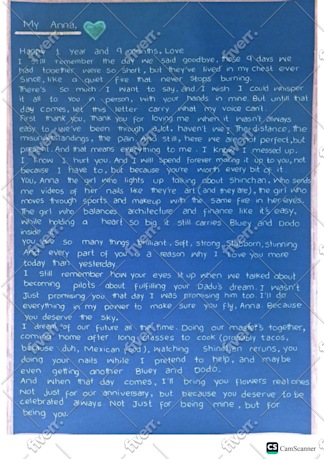 My Anna,
Happy 1 year and 9 months, Love
I still remember the day we said goodbye, these 9 days we
had together were so short, but they've lived in my chest ever
since, like a quiet fire that never stops burning.
There's so much I want to say, and I wish I could whisper
it all to you in person, with your hands in mine. But until that
day comes, let this letter carry what my voice can't.
First thank you, Thank you for loving me when it wasn't always
easy to we've been through alot, haven't we? The distance, the
misunderstandings, the pain. And still, here we are not perfect, but
present. And that means everything to me. I know I messed up.
I know I hurt you. And I will spend forever making it up to you, not
because I have to, but because you're worth every bit of it.
You, Anna the girl who lights up talking about Shinchan, who sends
me videos of her nails like they're art (and they are), the girl who
moves through sports and makeup with the same fire in her eyes.
The girl who balances architecture and finance like it's easy,
while holding a heart so big it still carries Bluey and Dodo
inside
you are so many things, brilliant, soft, strong, stubborn, stunning
And every part of you is a reason why I love you more
today than yesterday.
I still remember how your eyes lit up when we talked about
becoming pilots about fulfilling your Dadu's dream. I wasn't
Just promising you that day I was promising him too. I'll do
everything in my power to make sure you fly, Anna. Because
you deserve the sky.
I dream of our future all the time. Doing our master's together,
coming home after long classes to cook (probably tacos,
because duh, Mexican food), watching Shinchan reruns, you
doing your nails while I pretend to help, and maybe
even getting another Bluey and Dodo.
And when that day comes, I'll bring you flowers real ones
Not just for our anniversary, but because you deserve to be
celebrated always Not Just for being mine, but for
being you.
fiverr.
CS CamScanner